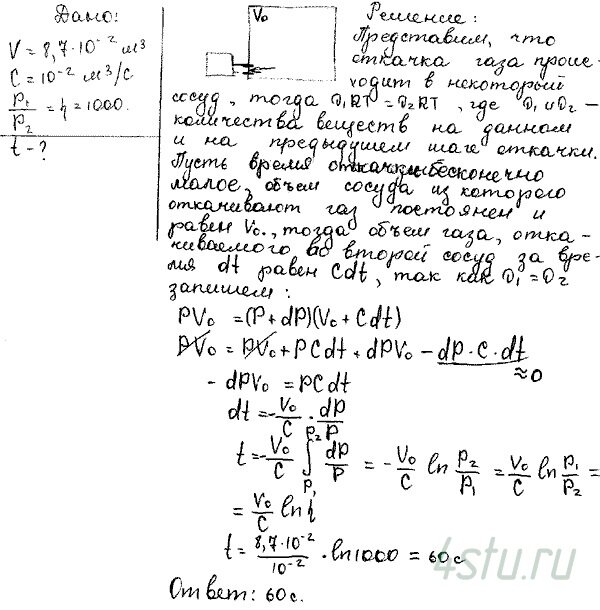 Дано:
V = 8,7·10⁻² м³
C = 10⁻² м³/с
P₁/P₂ = η = 1000.
t - ?
V₀
Решение:
Представим, что
откачка газа проис-
ходит в некоторый
сосуд, тогда υ₁RT = υ₂RT, где υ₁ и υ₂ –
количества веществ на данном
и на предыдущем шаге откачки.
Пусть время откачки бесконечно
малое, объем сосуда из которого
откачивают газ постоянен и
равен V₀, тогда объем газа, отка-
чиваемого во второй сосуд за вре-
мя dt равен Cdt, так как υ₁ = υ₂
запишем:
PV₀ = (P + dP)(V₀ + Cdt)
PV₀ = PV₀ + PCdt + dPV₀ - dP·C·dt
≈0
- dPV₀ = PCdt
dt = -V₀/C · dP/P
t = -V₀/C ∫ P₁ P₂ dP/P = -V₀/C ln P₂/P₁ = V₀/C ln P₁/P₂ =
= V₀/C ln η
t = 8,7·10⁻²/10⁻² · ln1000 = 60с
Ответ: 60с.
4stu.ru